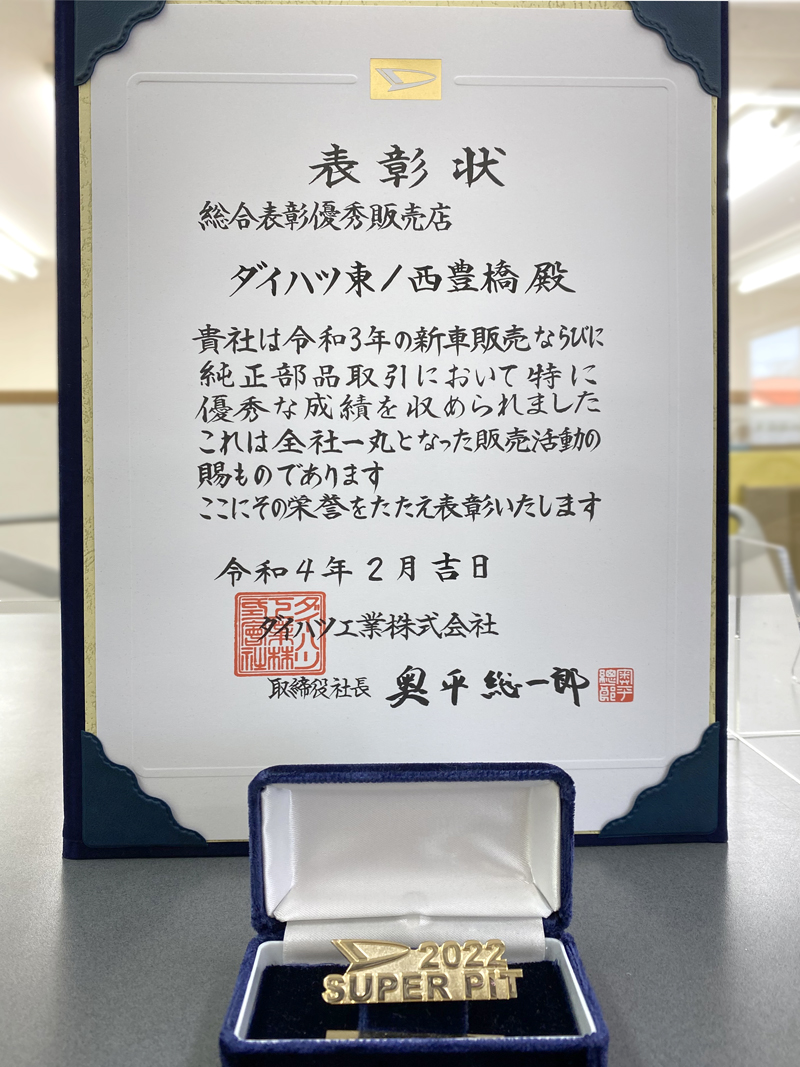 表彰状
総合表彰優秀販売店
ダイハツ東ノ西豊橋殿
貴社は令和3年の新車販売ならびに
純正部品取引において特に
優秀な成績を収められました
これは全社一丸となった販売活動の
賜ものであります
ここにその栄誉をたたえ表彰いたします
令和4年2月吉日
ダイハツ工業株式会社
取締役社長 奥平総一郎
2022
SUPER PiT